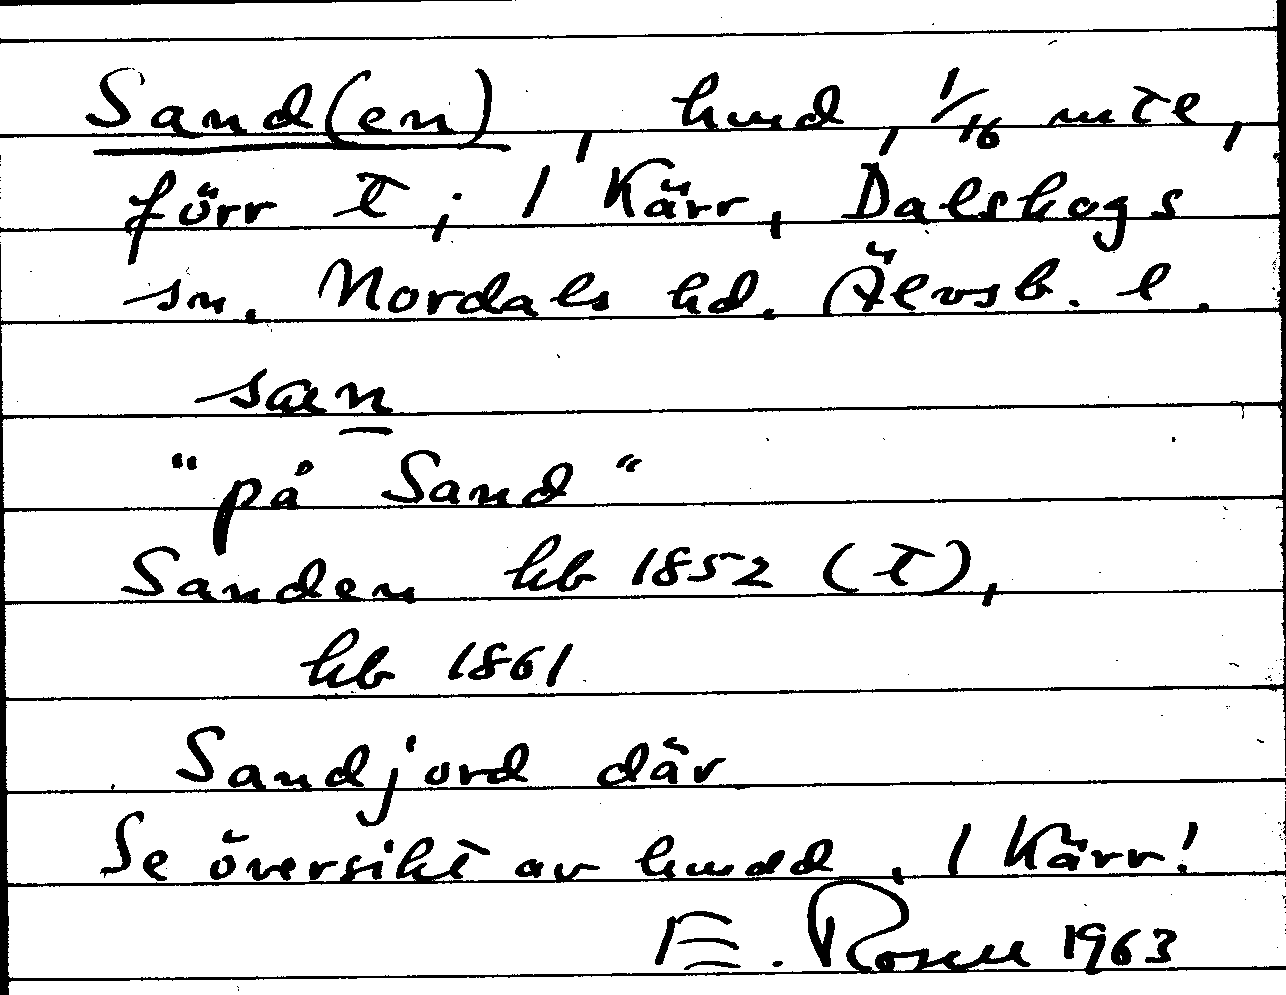 Sand(en), hmd, 1/16 mtl,
förr t; 1 Kärr, Dalskogs
sn. Nordals hd. Älvsb. l.
san
"på Sand"
Sanden hb 1852 (t),
hb 1861
Sandjord där
Se översikt av hmdd, 1 Kärr!
E. Rosell 1963